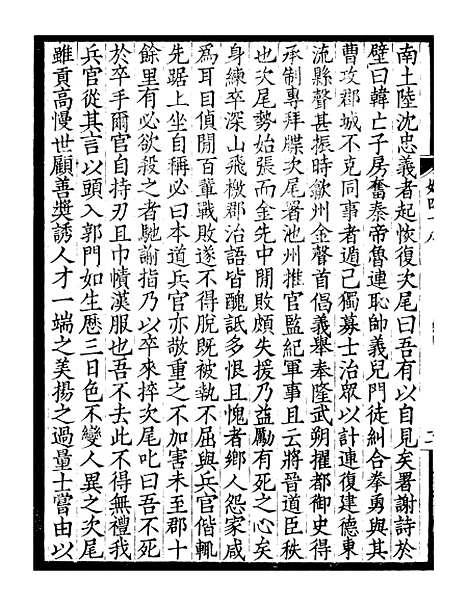 南土陸沈忠義者起恢復次尾曰吾有以自見矣署謝詩於
壁曰韓亡子房奮秦帝魯連恥帥義兒門徒糾合拳勇與其
曹攻郡城不克同事者遁己獨募士治眾以計連復建德東
流縣聲甚振時歙州金聲首倡義舉奉隆武朔擢都御史得
承制專拜牒次尾署池州推官監紀軍事且云將晉道臣秩
也次尾勢始張而金先中開敗頗失援乃益勵有死之心矣
身練卒深山飛檄郡治語皆醜詆多恨且愧者鄉人怨家咸
爲耳目偵開百輩戰敗遂不得脫既被執不屈與兵官偕輒
先踞上坐自稱必曰本道兵官亦敬重之不加害未至郡十
餘里有必欲殺之者馳諭指乃以卒來捽次尾叱曰吾不死
於卒手爾官自持刃且巾幘漢服也吾不去此不得無禮我
兵官從其言以頭入郭門如生歷三日色不變人異之次尾
雖貢高慢世顧善奬誘人才一端之美揚之過量士嘗由以